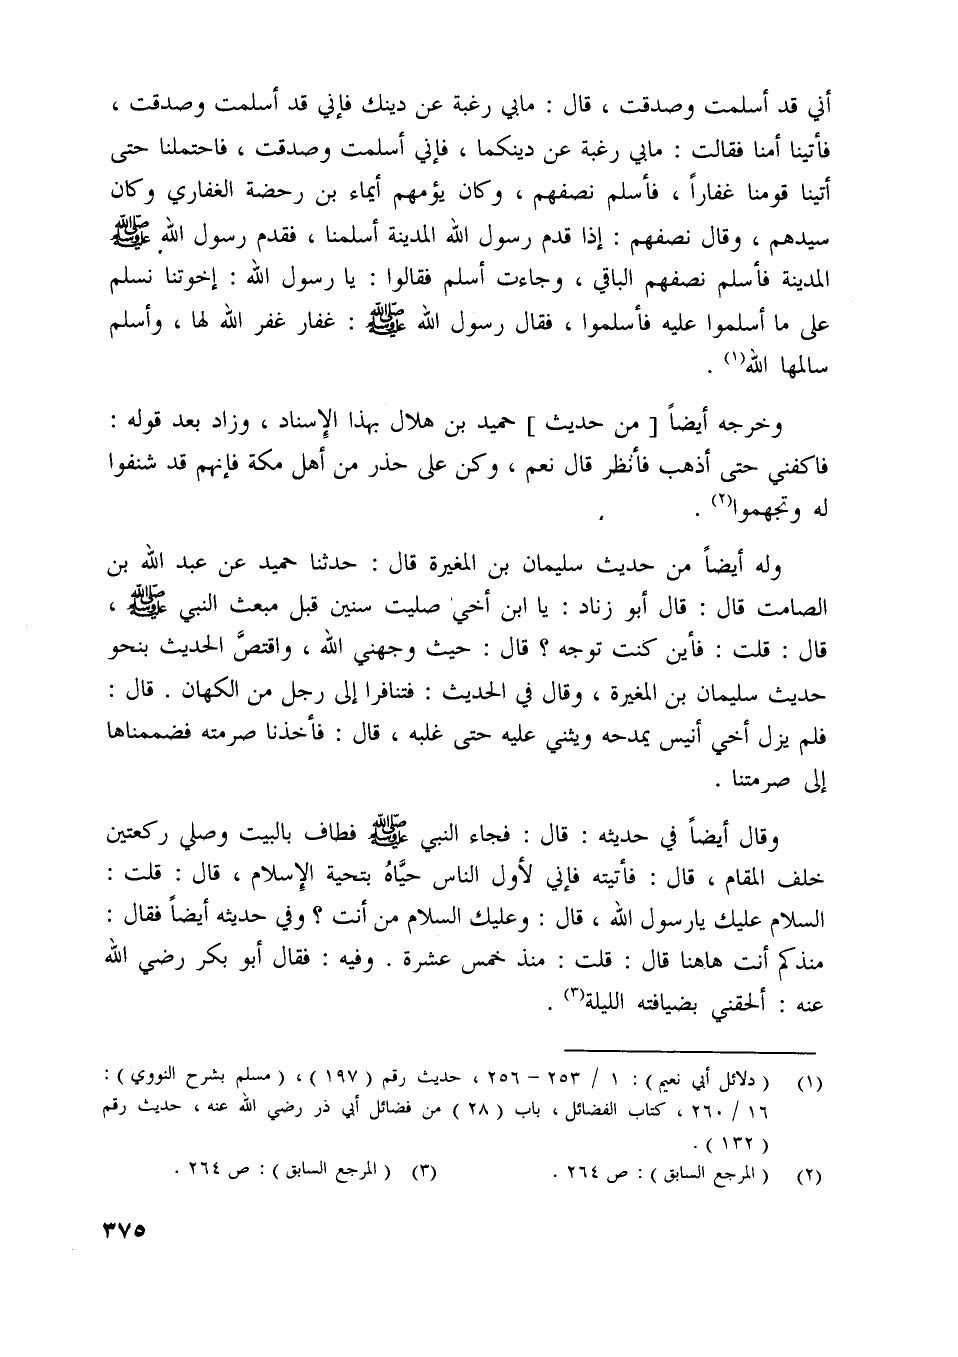 أني قد أسلمت وصدقت ، قال : مابي رغبة عن دينك فإني قد أسلمت وصدقت ،
فأتينا أمنا فقالت : مابي رغبة عن دينكما ، فإني أسلمت وصدقت ، فاحتملنا حتى
أتينا قومنا غفاراً ، فأسلم نصفهم ، وكان يؤمهم أيماء بن رحضة الغفاري وكان
سيدهم ، وقال نصفهم : إذا قدم رسول الله المدينة أسلمنا ، فقدم رسول الله ﷺ
المدينة فأسلم نصفهم الباقي ، وجاءت أسلم فقالوا : يا رسول الله : إخوتنا نسلم
على ما أسلموا عليه فأسلموا ، فقال رسول الله ﷺ : غفار غفر الله لها ، وأسلم
سالمها الله(١) .
وخرجه أيضاً [ من حديث ] حميد بن هلال بهذا الإسناد ، وزاد بعد قوله :
فاكفني حتى أذهب فأنظر قال نعم ، وكن على حذر من أهل مكة فإنهم قد شنفوا
له وتجهموا(٢) .
وله أيضاً من حديث سليمان بن المغيرة قال : حدثنا حميد عن عبد الله بن
الصامت قال : قال أبو زناد : يا ابن أخي صليت سنين قبل مبعث النبي ﷺ ،
قال : قلت : فأين كنت توجه ؟ قال : حيث وجهني الله ، واقتصَّ الحديث بنحو
حديث سليمان بن المغيرة ، وقال في الحديث : فتنافرا إلى رجل من الكهان . قال :
فلم يزل أخي أنيس يمدحه ويثني عليه حتى غلبه ، قال : فأخذنا صرمته فضممناها
إلى صرمتنا .
وقال أيضاً في حديثه : قال : فجاء النبي ﷺ فطاف بالبيت وصلي ركعتين
خلف المقام ، قال : فأتيته فإني لأول الناس حيَّاهُ بتحية الإسلام ، قال : قلت :
السلام عليك يارسول الله ، قال : وعليك السلام من أنت ؟ وفي حديثه أيضاً فقال :
منذكم أنت هاهنا قال : قلت : منذ خمس عشرة . وفيه : فقال أبو بكر رضي الله
عنه : ألحقني بضيافته الليلة(٣) .
(١) ( دلائل أبي نعيم ) : ١ / ٢٥٣ – ٢٥٦ ، حديث رقم ( ١٩٧ ) ، ( مسلم بشرح النووي ) :
١٦ / ٢٦٠ ، كتاب الفضائل ، باب ( ٢٨ ) من فضائل أبي ذر رضي الله عنه ، حديث رقم
( ١٣٢ ) .
(٢) ( المرجع السابق ) : ص ٢٦٤ . (٣) ( المرجع السابق ) : ص ٢٦٤ .
٣٧٥